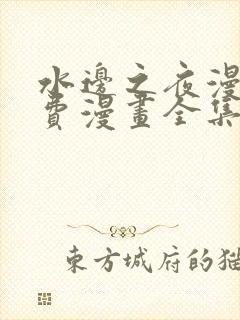 水邊之夜漫
費漫畫全集
東方城府的獵